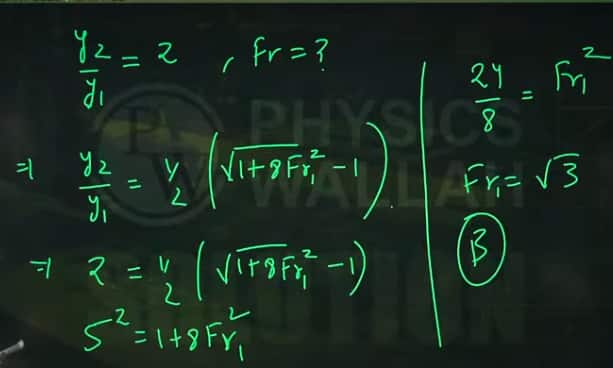 y2/y1 = 2 , Fr = ?
⇒ y2/y1 = 1/2 (√(1+8Fr1²) - 1)
⇒ 2 = 1/2 (√(1+8Fr1²) - 1)
5² = 1+8Fr1²
24/8 = Fr1²
Fr1 = √3
B
PHYSICS
WALLAH
SOLUTION